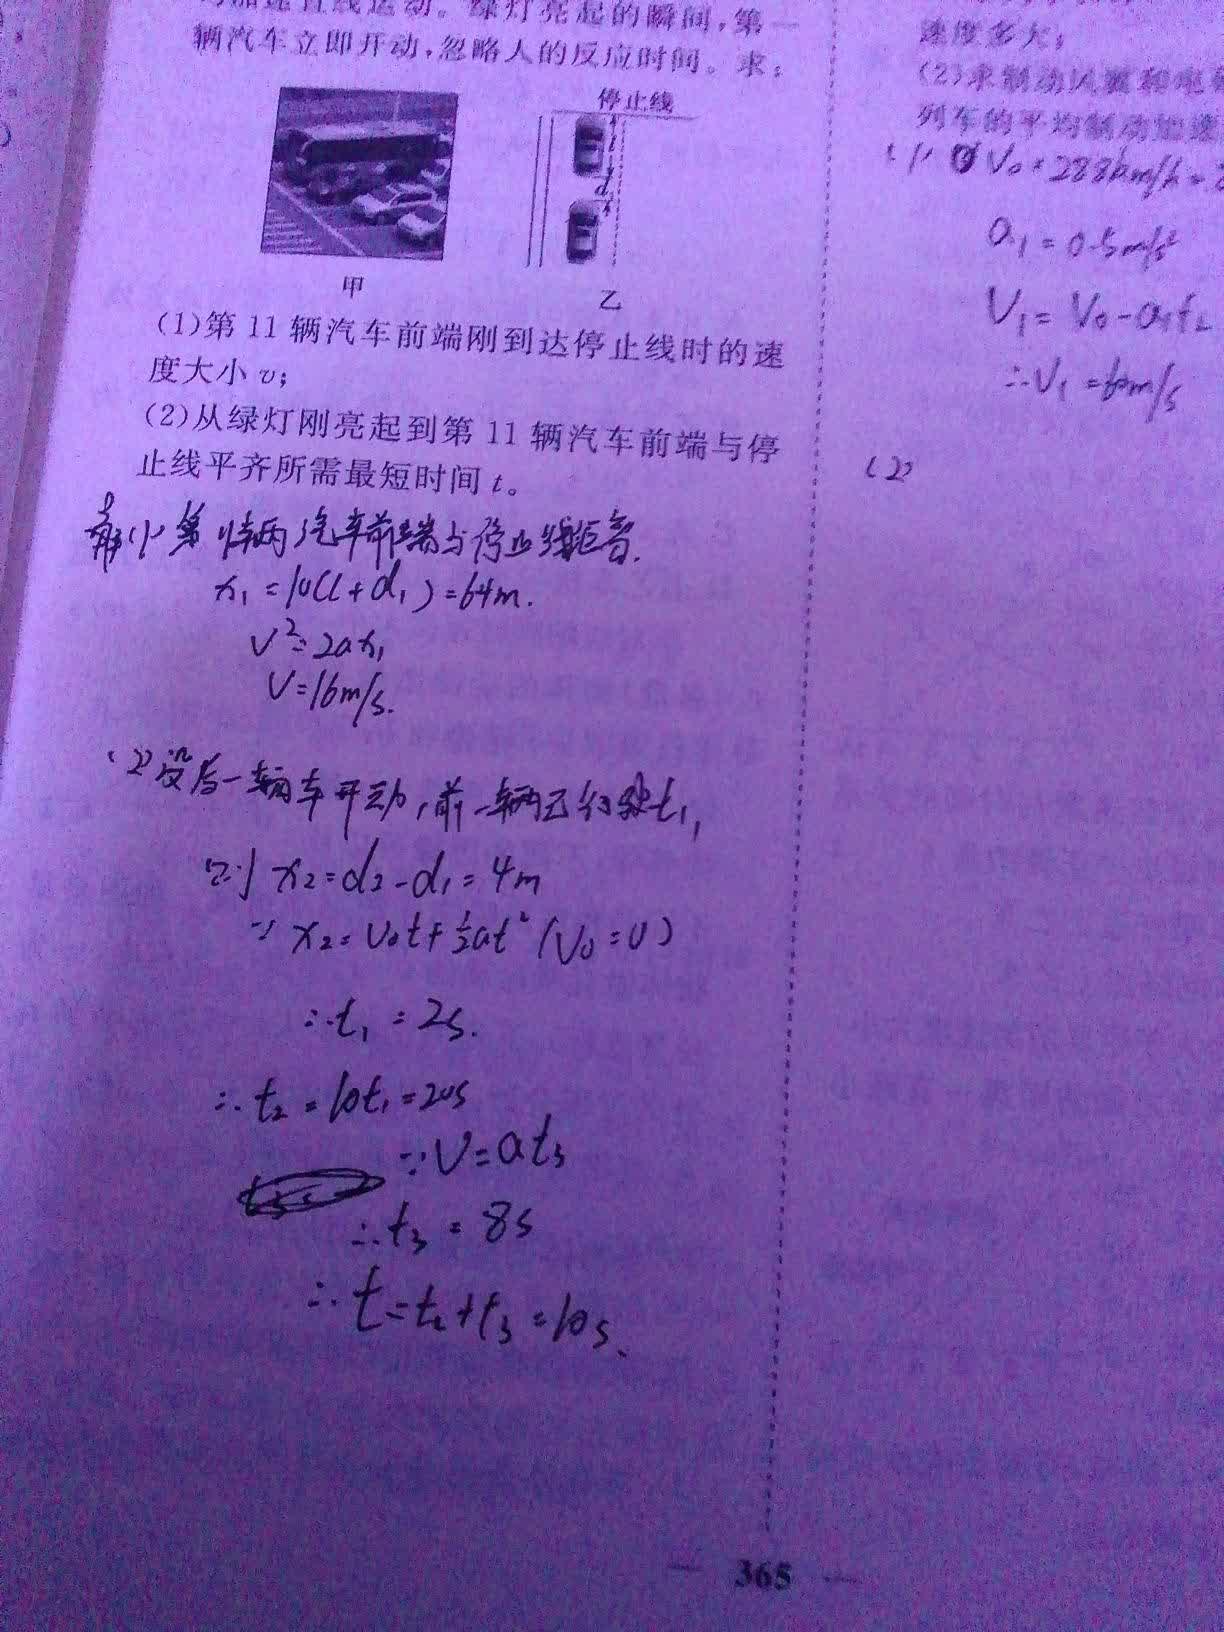 匀加速直线运动。绿灯亮起的瞬间,第一
辆汽车立即开动,忽略人的反应时间。求:
停止线
l
d
甲
乙
(1)第 11 辆汽车前端刚到达停止线时的速
度大小 v;
(2)从绿灯刚亮起到第 11 辆汽车前端与停
止线平齐所需最短时间 t。
解(1) 第 11辆汽车前端与停止线距离.
x₁=10(l+d₁)=64m.
v²=2ax₁
v=16m/s.
(2)设后一辆车开动,前一辆已行驶t₁,
则 x₂=d₂-d₁=4m
∵ x₂=v₀t+½at² (v₀=0)
∴t₁=2s.
∴t₂=10t₁=20s
∵v=at₃
∴t₃=8s
∴t=t₂+t₃=10s.
365
速度多大;
(2)求制动风翼和电
列车的平均制动加速
(1) V₀=288km/h=
a₁=0.5m/s²
V₁=V₀-a₁t₂
∴V₁=60m/s
(2)